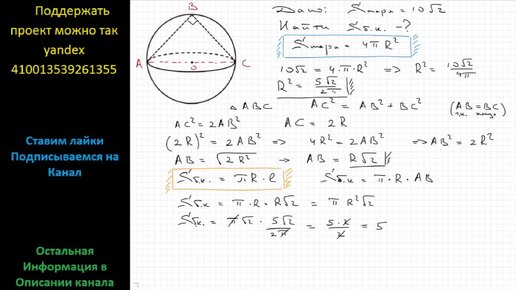 Поддержать
проект можно так
yandex
410013539261355
Ставим лайки
Подписываемся на
Канал
Остальная
Информация в
Описании канала
A
B
C
O
Дано: Sшара = 10√2
Найти Sб.к. - ?
Sшара = 4πR²
10√2 = 4·π·R² => R² = 10√2/4π
R² = 5√2/2π
△ABC AC² = AB² + BC² (AB = BC)
AC² = 2AB² AC = 2R
(2R)² = 2AB² => 4R² = 2AB² => AB² = 2R²
AB = √2R² → AB = R√2
Sб.к. = πR·l Sб.к = π·R·AB
Sб.к = π·R·R√2 = πR²√2
Sб.к. = π√2 · 5√2/2π = 5·2/2 = 5